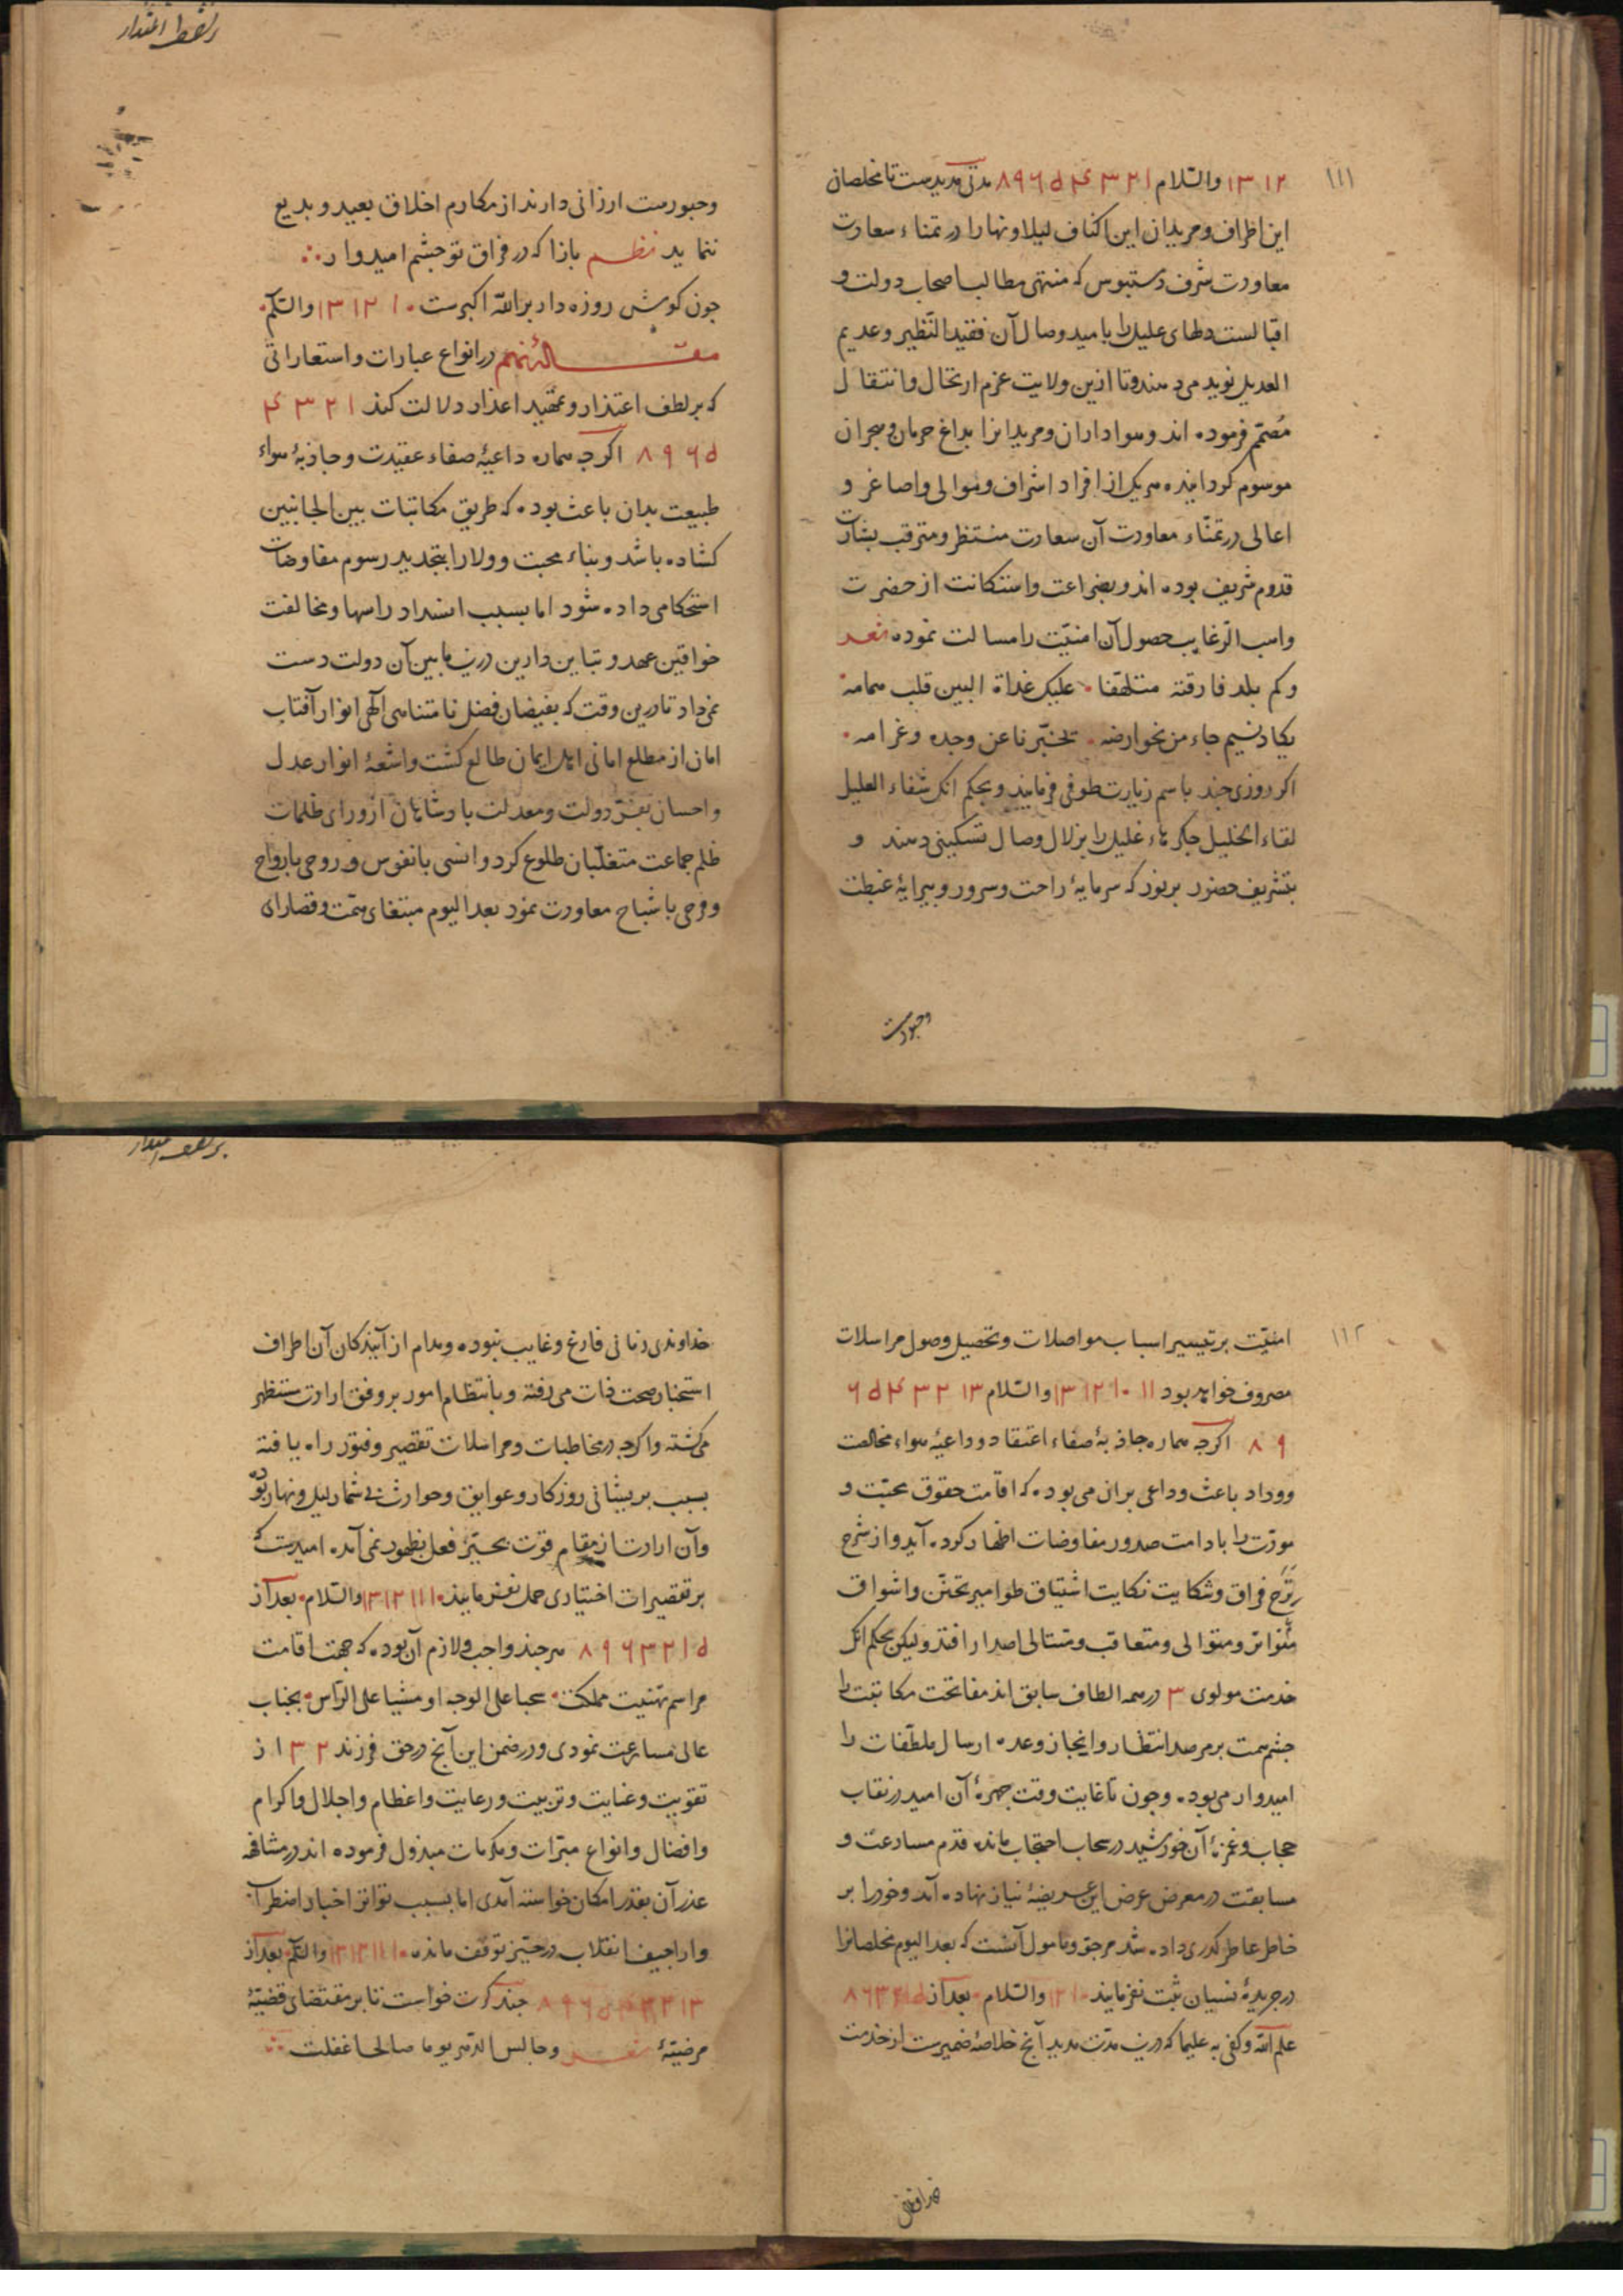 ١١١
١٢ ١٣ والسّلام ١ ٢ ٣ ۴ ۵ ۶ ٩ ٨ مدتی مدیدست تا مخلصان
این اطراف و مریدان این اکناف لیلا و نهارا در تمناء سعادت
معاودت شرف دستبوس که منتهی مطالب اصحاب دولت و
اقبالست دلهای علیل را بامید وصال آن فقید النّظیر و عدیم
العدیل نوید می دهند و تا ازین ولایت عزم ارتحال و انتقال
مُصمّم فرموده اند و هواداران و مریدانرا بداغ حرمان و هجران
موسوم کردانیده هریک از افراد اشراف و موالی و اصاغر و
اعالی در تمنّاء معاودت آن سعادت منتظر و مترقب بشارت
قدوم شریف بوده اند و بضراعت و استکانت از حضرت
واهب الرّغایب حصول آن امنیّت را مسالت نموده شعر
وکم بلد فارقته متلهّفا علیک غداة البین قلب همامه
یکاد نسیم جاء من نحو ارضه یخبّرنا عن وجده و غرامه
اکر روزی جند باسم زیارت طوفی فرمایند و بحکم انک شفاء العلیل
لقاء الخلیل جکرهاء غلیل را بزلال وصال تسکینی دهند و
بتشریف حضور برنور که سرمایهٔ راحت و سرور و پیرایهٔ غبطت
وحبورست
وحبورست ارزانی دارند از مکارم اخلاق بعید و بدیع
ننماید نظم بازا که در فراق تو جشم امیدوار
جون کوش روزه دار بر الله اکبرست ١٠ ١٢ ١٣ والسّلم
مقالهٔ نهم در انواع عبارات و استعاراتی
که بر لطف اعتذار و تمهید اعذار دلالت کند ١ ٢ ٣ ۴
۵ ۶ ٩ ٨ اکرجه هماره داعیهٔ صفاء عقیدت و جاذبهٔ هواء
طبیعت بدان باعث بوده که طریق مکاتبات بین الجانبین
کشاده باشد و بناء محبت و ولا را بتجدید رسوم مفاوضات
استحکامی داده شود اما بسبب انسداد راهها و مخالفت
خواقین عهد و تباین دارین درین مابین آن دولت دست
نمی داد تا درین وقت که بفیضان فضل نامتناهی آلهی انوار آفتاب
امان از مطلع امانی اهل ایمان طالع کشت و اشعهٔ انوار عدل
و احسان بفرّ دولت و معدلت بادشاهان از ورای ظلمات
ظلم جماعت متغلّبان طلوع کرد و انسی بانفوس و روحی بارواح
و فرحی باشباح معاودت نمود بعد الیوم مبتغای همّت و قصارای
١١٢
امنیّت بر تیسیر اسباب مواصلات و تحصیل وصول مراسلات
مصروف خواهد بود ١١ ١٠ ١٢ ١٣ والسّلام ١٣ ٢ ٣ ۴ ۵ ۶
٩ ٨ اکرجه هماره جاذبهٔ صفاء اعتقاد و داعیهٔ هواء مخالصت
و وداد باعث و داعی بران می بوده که اقامت حقوق محبّت و
مودّت را بادامت صدور مفاوضات اظهار کرده آید و از شرح
برّح فراق و شکایت نکایت اشتیاق طوامیر تحنّن و اشواق
متواتر و متوالی و متعاقب و متتالی اصدار افتد و لیکن بحکم انک
خدمت مولوی ٣ در همه الطاف سابق اند مفاتحت مکاتبت را
جشم همت بر مرصد انتظار و انجاز وعده ارسال ملطّفات را
امیدوار می بوده و جون تا غایت وقت جهرهٔ آن امید در نقاب
حجاب و غرّهٔ آن خورشید در سحاب احتجاب مانده قدم مسارعت و
مسابقت در معرض عرض این عریضهٔ نیاز نهاده آمد و خود را بر
خاطر عاطر کدری داده شد مرجوّ و مامول آنست که بعد الیوم مخلصانرا
در جریدهٔ نسیان ثبت نفرمایند ١٠ ١٢ والسّلام بعد از ۵ ١ ٢ ٣ ۶ ٨
علم الله و کفی به علیما که درین مدّت مدید آنج خلاصهٔ ضمیرست از خدمت
خداوندی زمانی فارغ و غایب نبوده و مدام از آیندکان آن اطراف
استخبار صحت ذات می رفته و بانتظام امور بر وفق ارادت مستظهر
می کشته و اکرجه در مخاطبات و مراسلات تقصیر و فتور راه یافته
بسبب بریشانی روزکار و عوایق و حوادث بی شمار لیل و نهار بوده
و آن ارادت از مقام قوت بحیّز فعل بظهور نمی آمده امیدست که
بر تقصیرات اختیاری حمل نفرمایند ١٠ ١١ ١٢ ١٣ والسّلام بعد از
۵ ١ ٢ ٣ ۶ ٩ ٨ هر جند واجب و لازم آن بوده که جهت اقامت
مراسم تهنیت مملکت سحبا علی الوجه او مشیا علی الرّاس بجناب
عالی مسارعت نمودی و در ضمن این آنج در حق فرزند ٢ ٣ از
تقویت و عنایت و تربیت و رعایت و اعظام و اجلال و اکرام
و افضال و انواع مبرّات و مکرمات مبذول فرموده اند در مشافهه
عذر آن بقدر امکان خواسته آمدی اما بسبب تواتر اخبار اضطراب
و اراجیف انقلاب در حیّز توقف مانده ١٠ ١١ ١٢ ١٣ والسّلم بعد از
١٣ ٢ ٣ ۴ ۵ ۶ ٩ ٨ جند کرت خواست تا بر مقتضای قضیّهٔ
مرضیّهٔ شعر و جالس الدّهر یوما صالحا غفلت